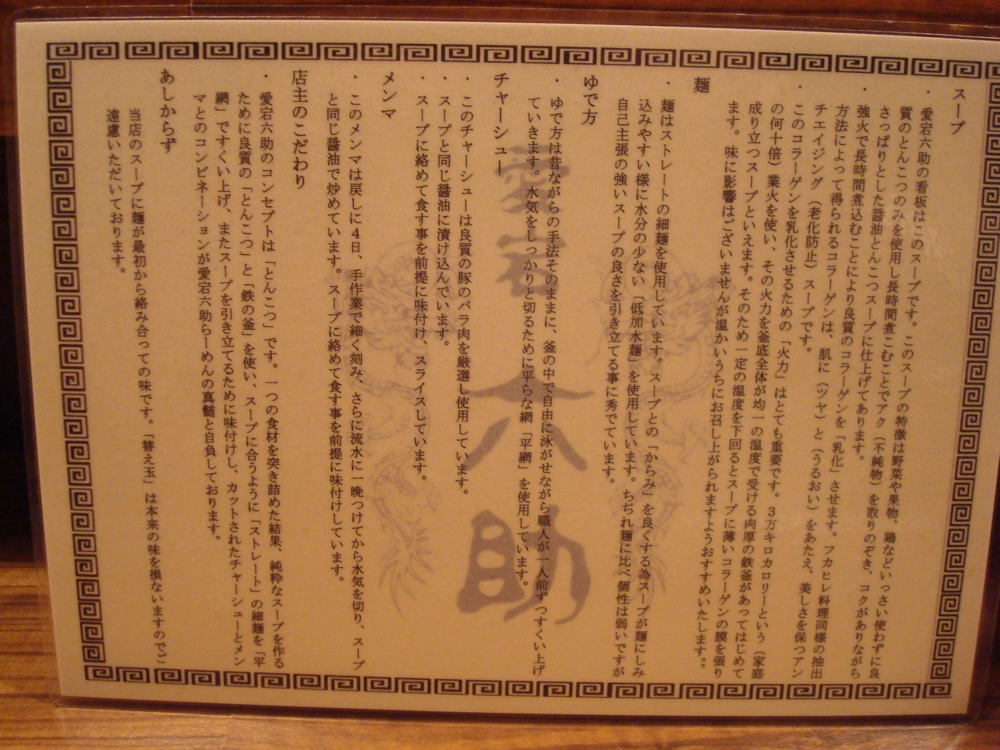 スープ
・愛宕六助の看板はこのスープです。このスープの特徴は野菜や果物、鶏などいっさい使わずに良
質のとんこつのみを使用し長時間煮こむことでアク（不純物）を取りのぞき、コクがありながら
さっぱりとした醤油とんこつスープに仕上げてあります。
・強火で長時間煮込むことにより良質のコラーゲンを「乳化」させます。フカヒレ料理同様の抽出
方法によって得られるコラーゲンは、肌に（ツヤ）と（うるおい）をあたえ、美しさを保つアン
チエイジング（老化防止）スープです。
・このコラーゲンを乳化させるための「火力」はとても重要です。３万キロカロリーという（家庭
の何十倍）業火を使い、その火力を釜底全体が均一の温度で受ける肉厚の鉄釜があってはじめて
成り立つスープといえます。そのため一定の温度を下回るとスープに薄いコラーゲンの膜を張り
ます。味に影響はございませんが温かいうちにお召し上がられますようおすすめいたします。。
麺
・麺はストレートの細麺を使用しています。スープとの「からみ」を良くする為スープが麺にしみ
込みやすい様に水分の少ない「低加水麺」を使用しています。ちぢれ麺に比べ個性は弱いですが
自己主張の強いスープの良さを引き立てる事に秀でています。
ゆで方
・ゆで方は昔ながらの手法そのままに、釜の中で自由に泳がせながら職人が一人前ずつすくい上げ
ていきます。水気をしっかりと切るために平らな網「平網」を使用しています。
チャーシュー
・このチャーシューは良質の豚のバラ肉を厳選し使用しています。
・スープと同じ醤油に漬け込んでいます。
・スープに絡めて食す事を前提に味付け、スライスしています。
メンマ
・このメンマは戻しに４日、手作業で細く刻み、さらに流水に一晩つけてから水気を切り、スープ
と同じ醤油で炒めています。スープに絡めて食す事を前提に味付けしています。
店主のこだわり
・愛宕六助のコンセプトは「とんこつ」です。一つの食材を突き詰めた結果、純粋なスープを作る
ために良質の「とんこつ」と「鉄の釜」を使い、スープに合うように「ストレート」の細麺を「平
網」ですくい上げ、またスープを引き立てるために味付けし、カットされたチャーシューとメン
マとのコンビネーションが愛宕六助らーめんの真髄と自負しております。
あしからず
当店のスープに麺が最初から絡み合っての味です。「替え玉」は本来の味を損ないますのでご
遠慮いただいております。
愛宕六助